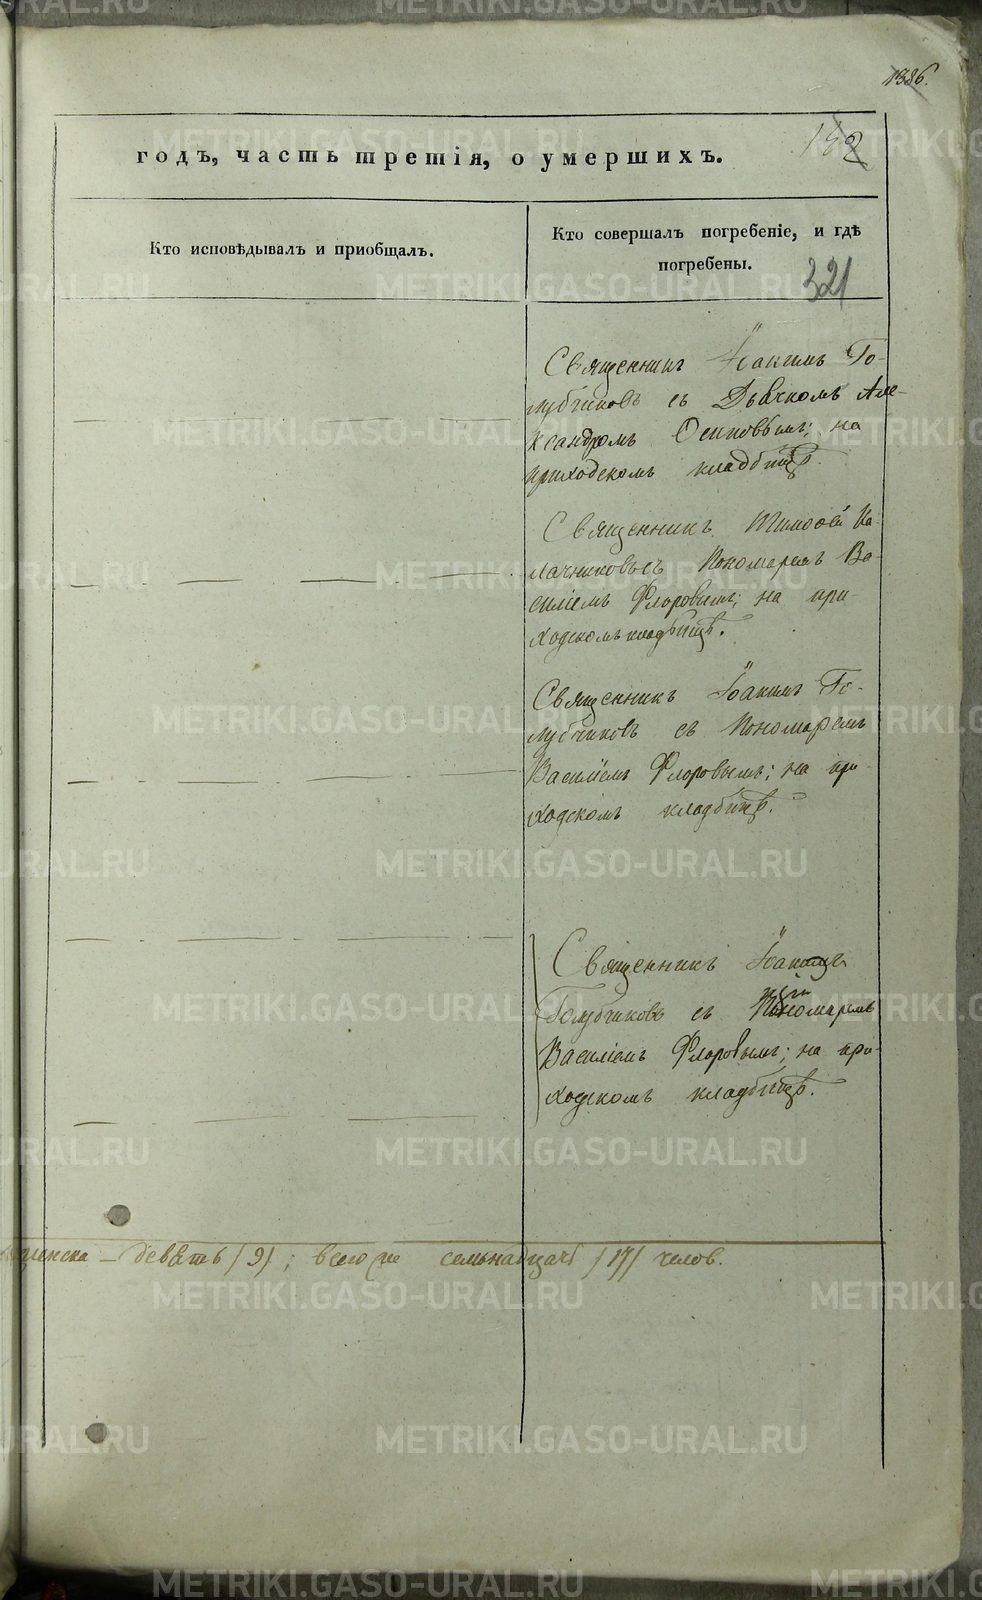 1386.
132
годъ, часть третія, о умершихъ.
Кто исповѣдывалъ и пріобщалъ.
Кто совершалъ погребеніе, и гдѣ
погребены.
321
Священникъ Іоакимъ Го-
лубчиковъ съ Дьячкомъ Але-
ксандромъ Осиповымъ; на
приходскомъ кладбищѣ.
Священникъ Тимоѳей Ка-
лачниковъ съ Пономаремъ Ва-
силіемъ Флоровымъ; на при-
ходскомъ кладбищѣ.
Священникъ Іоакимъ Го-
лубчиковъ съ Пономаремъ
Василіемъ Флоровымъ; на при-
ходскомъ кладбищѣ.
Священникъ Іоакимъ
Голубчиковъ съ Пономаремъ
Василіемъ Флоровымъ; на при-
ходскомъ кладбищѣ.
женска — девять /9/; всего же семьнадцать /17/ челов.
METRIKI.GASO-URAL.RU